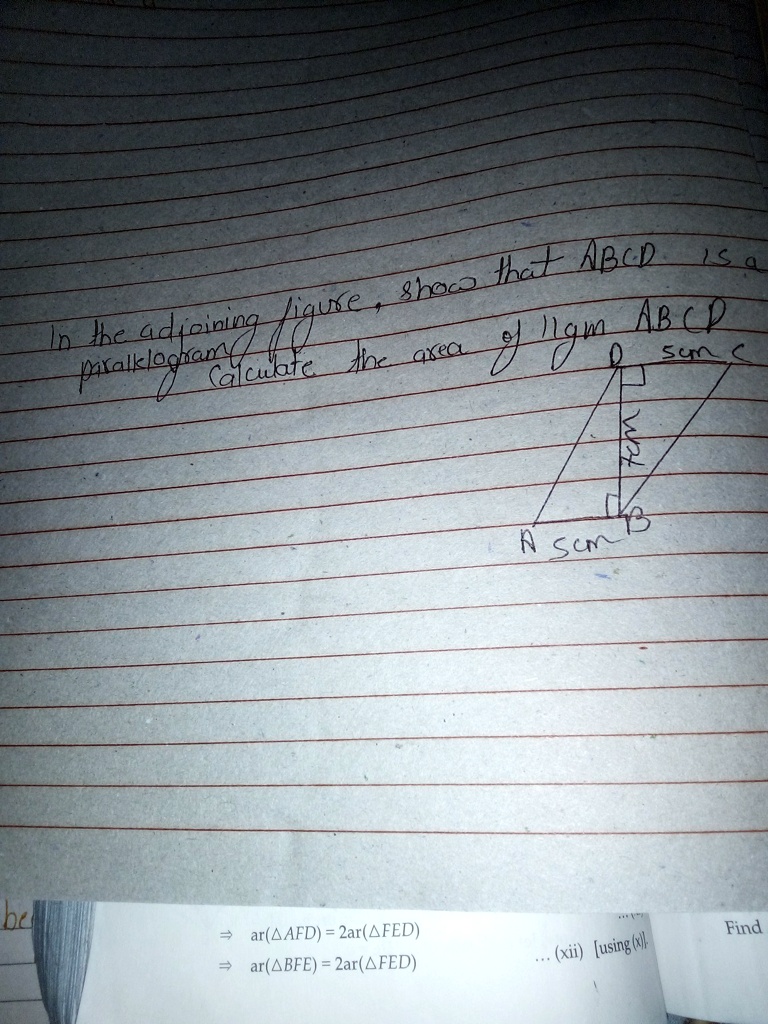 In the adjoining figure, show that ABCD is a
parallelogram
Calculate the area of 11gm ABCD
D 5cm C
A 5cm B
be
⇒ ar(△AFD) = 2ar(△FED)
⇒ ar(△BFE) = 2ar(△FED) ... (xii) [using (x)].
Find